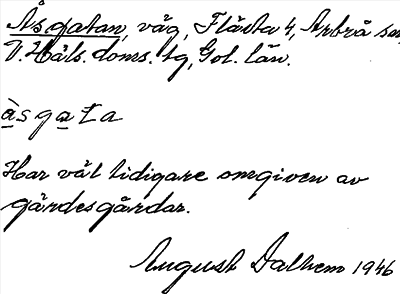 Åsgatan, väg, Flästa 4, Arbrå sn,
V. Häls. doms. tg, Gvl. län.
àsgata
Har väl tidigare omgiven av
gärdesgårdar.
August Dalhem 1946